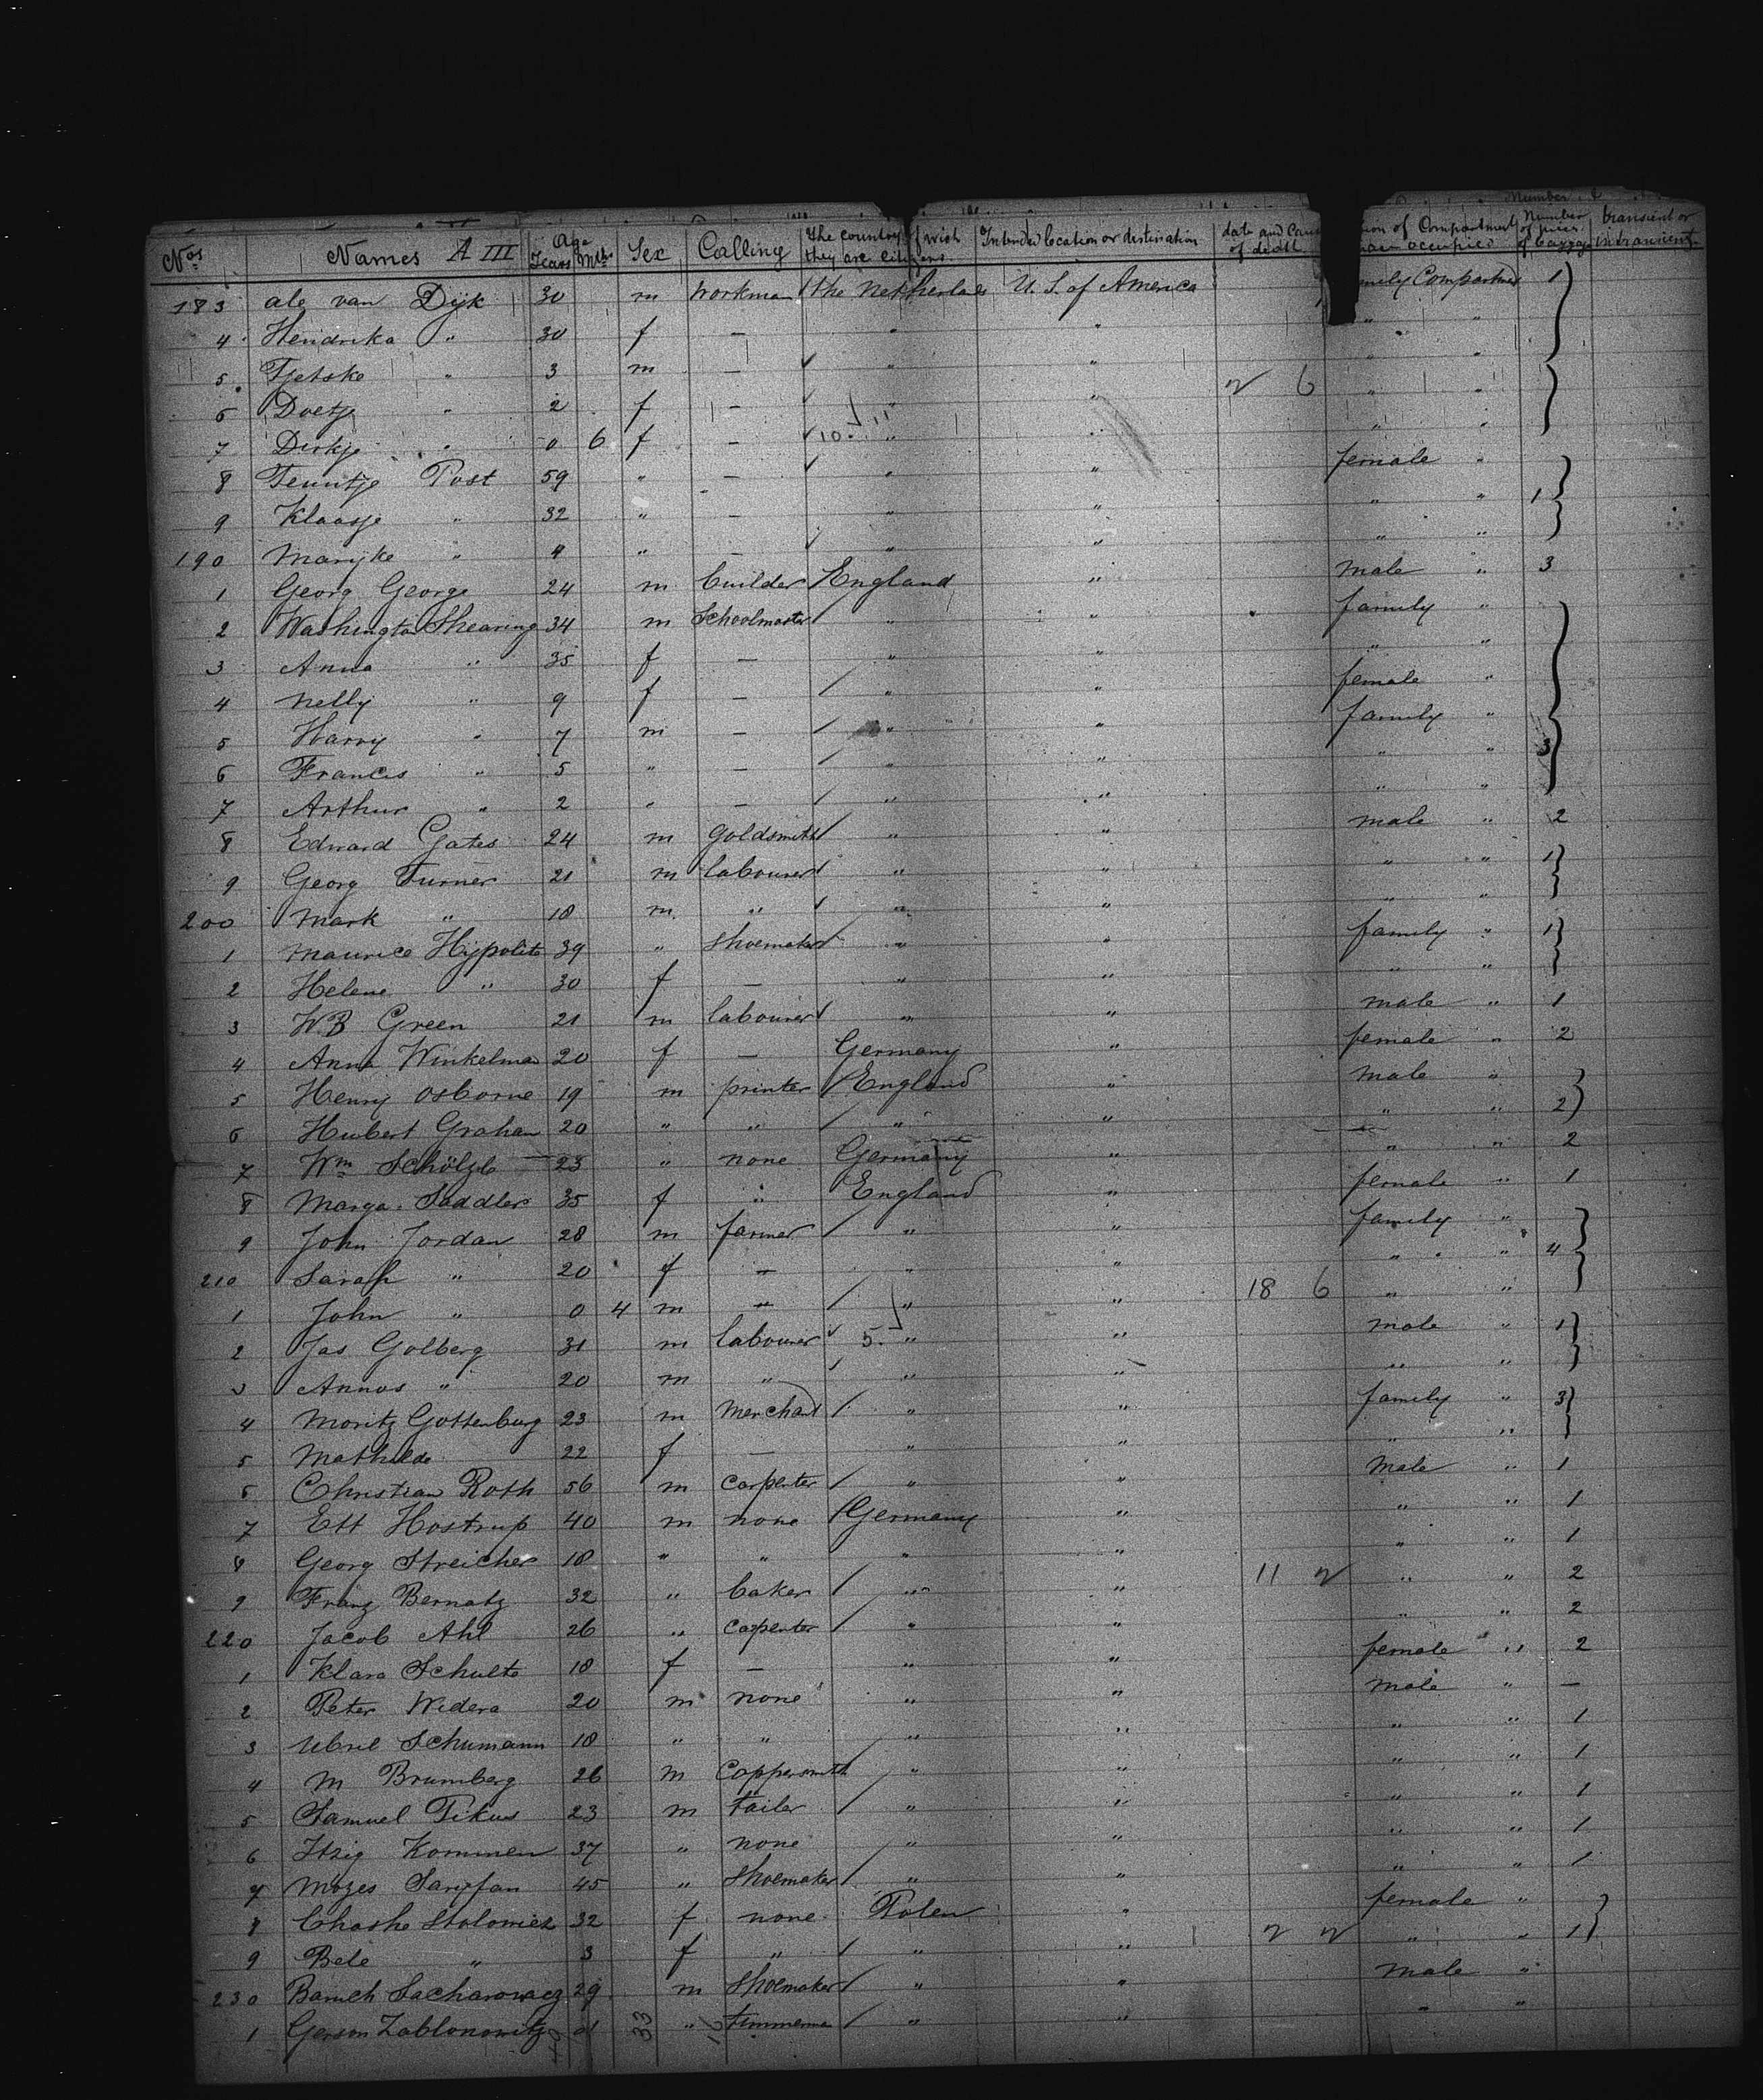 Nos Names A III Age Years Mths Sex Calling the country of wich they are citizens. Intended location or destination date and Cause of death ion of Compartment occupied Number of pieces of baggage transient or intransient
183 ale van Dijk 30 m workman the Netherlands U.S. of America mily Compartment 1
4 Hendrika " 30 f — " " " "
5 Tjetske " 3 m — " " " "
6 Doetje " 2 f — " " 2 6 " "
7 Dirkje " 0 6 f — 10. " " " "
8 Teuntje Post 59 " — " " female "
9 Klaasje " 32 " — " " " " 1
190 Marijke " 4 " — " " " "
1 Georg George 24 m builder England " male " 3
2 Washington Shearing 34 m Schoolmaster " " family "
3 Anna " 35 f — " " " "
4 Nelly " 9 f — " " female "
5 Harry " 7 m — " " family "
6 Francis " 5 " — " " " " 3
7 Arthur " 2 " — " " " "
8 Edward Gates 24 m goldsmith " " male " 2
9 Georg Turner 21 m labourer " " " " 1
200 Mark " 18 m " " " " "
1 Maurice Hijpolite 39 " shoemaker " " family " 1
2 Helene " 30 f — " " " "
3 W.B Green 21 m labourer " " male " 1
4 Anna Winkelman 20 f — Germany " female " 2
5 Henry Osborne 19 m printer England " male "
6 Hubert Graham 20 " " " " " " 2
7 Wm Schölzb 23 " none Germany " " " 2
8 Marga. Saddler 35 f " England " female " 1
9 John Jordan 28 m farmer " " family "
210 Sarah " 20 f — " " " " 4
1 John " 0 4 m — " " 18 6 " "
2 Jas Golberg 31 m labourer 5. " " male " 1
3 Annos " 20 m " " " " "
4 Moritz Gottenburg 23 m Merchant " " family " 3
5 Mathilde 22 f — " " " "
6 Christian Roth 56 m carpenter " " Male " 1
7 Ett Hostrup 40 m none Germany " " " 1
8 Georg Streicher 18 " " " " " " 1
9 Franz Bernatz 32 " baker " " 11 2 " " 2
220 Jacob Ahl 26 " carpenter " " " " 2
1 Klara Schulte 18 f — " " female " 2
2 Peter Widera 20 m none " " male " —
3 Schumann 18 " " " " " " 1
4 M Brumberg 26 m Coppersmith " " " " 1
5 Samuel Pikus 23 m tailer " " " " 1
6 Itzig Kommen 37 " none " " " " 1
7 Mozes 45 " shoemaker " " " " 1
8 Chashe Stolowicz 32 f none Polen " female "
9 Bele " 3 f " " " 2 2 " " 1
230 Baruch Sacharowacz 29 m shoemaker " " male "
1 Gerson Zablonowitz 33 " timmerman " " " "